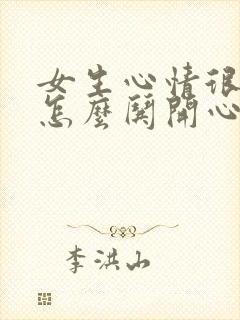 女生心情很
怎麼鬨開心
李洪山